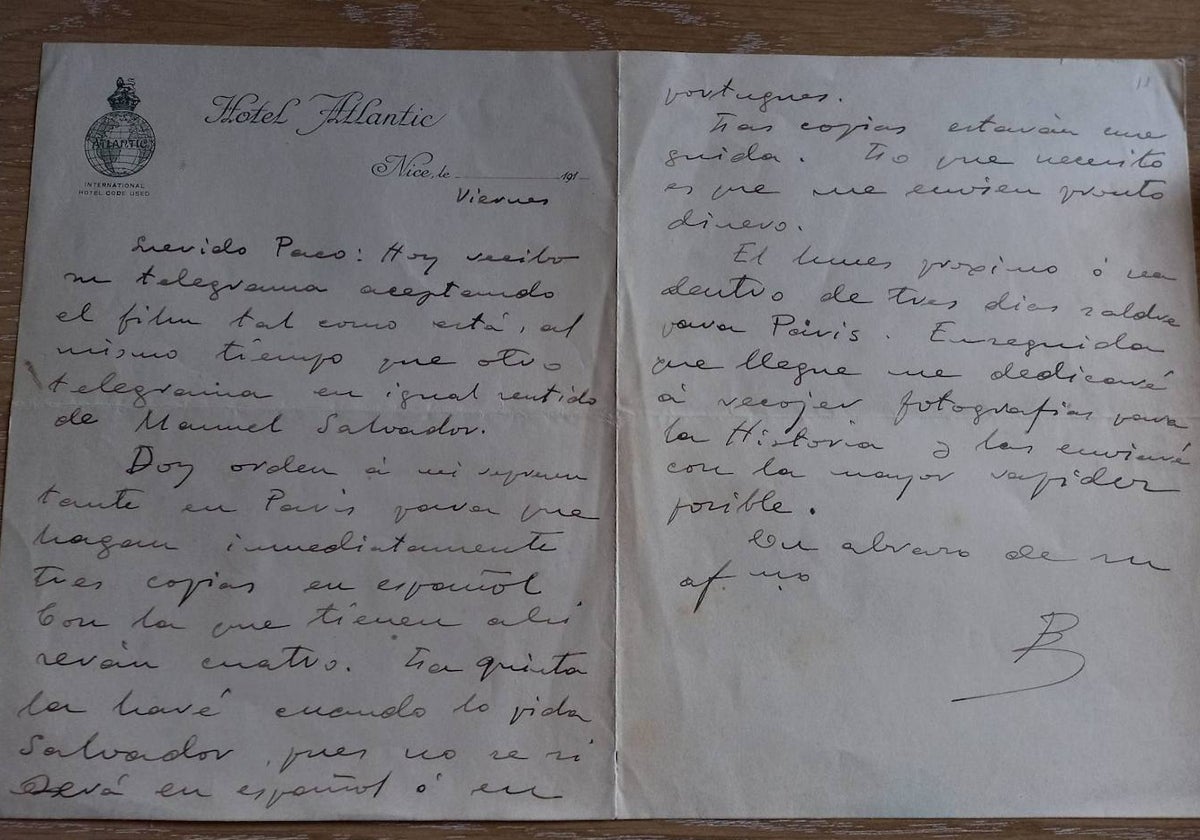 ATLANTIC
INTERNATIONAL
HOTEL CODE USED
Hotel Atlantic
Nice, le 191
Viernes
Querido Paco: Hoy recibo
su telegrama aceptando
el film tal como está, al
mismo tiempo que otro
telegrama en igual sentido
de Manuel Salvador.
Doy orden á mi represen
tante en Paris para que
hagan inmediatamente
tres copias en español
Con la que tienen ahi
serán cuatro. La quinta
la haré cuando lo pida
Salvador, pues no se si
será en español ó en
11
portugues.
Las copias estarán ense
guida. Lo que necesito
es que me envien pronto
dinero.
El lunes proximo ó sea
dentro de tres dias saldre
para Páris. Enseguida
que llegue me dedicaré
á recojer fotografias para
la Historia y las enviaré
con la mayor rapidez
posible.
Un abrazo de su
af mo
B